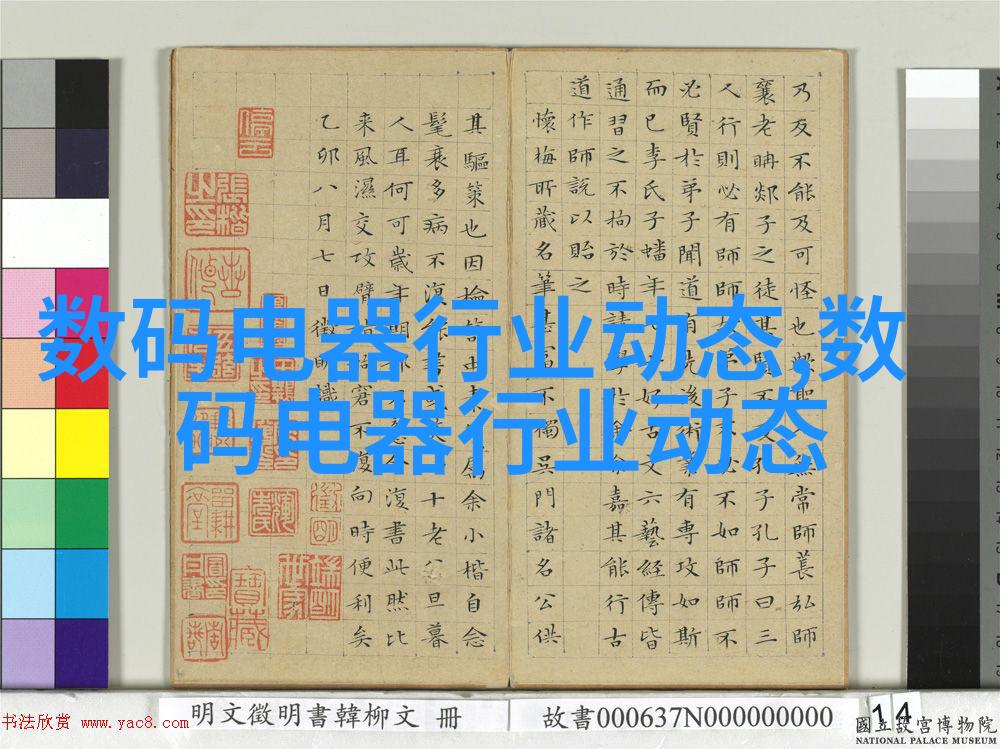 数码电器行业动态,数
码电器行业动态
乃反不能及可怪也歟聖無常師萇弘師
襄老聃郯子之徒其賢不及孔子孔子曰三
人行則必有師師故弟子不必不如師師不
必賢於弟子聞道有先後術業有專攻如斯
而已李氏子蟠年好古文六藝經傳皆
通習之不拘於時請學於余余嘉其能行古
道作師說以貽之
懷梅所藏名筆甚富不獨吳門諸名公供
其驅策也因檢屬余小楷自念
髦衰多病不復書十老公旦暮
人耳何可歲年期復書此然比
来風濕交攻臂指窘不復向時便利矣
乙卯八月七日徵明識
明文徵明書韓柳文 冊
故書000637N000000000
14
書法欣赏 www.yac8.com
國立故宮博物院
NATIONAL PALACE MUSEUM